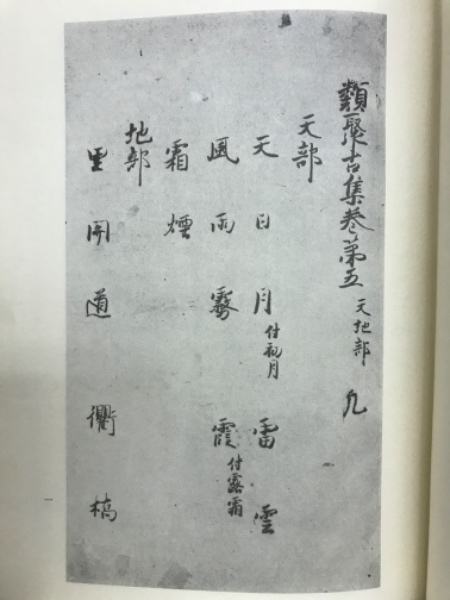 類聚古集卷第五 天地部 九
天部
天 日 月 付初月 雷 雲
風 雨 霧 霞 付露霜
霜 煙
地部
里 道 衢 橋